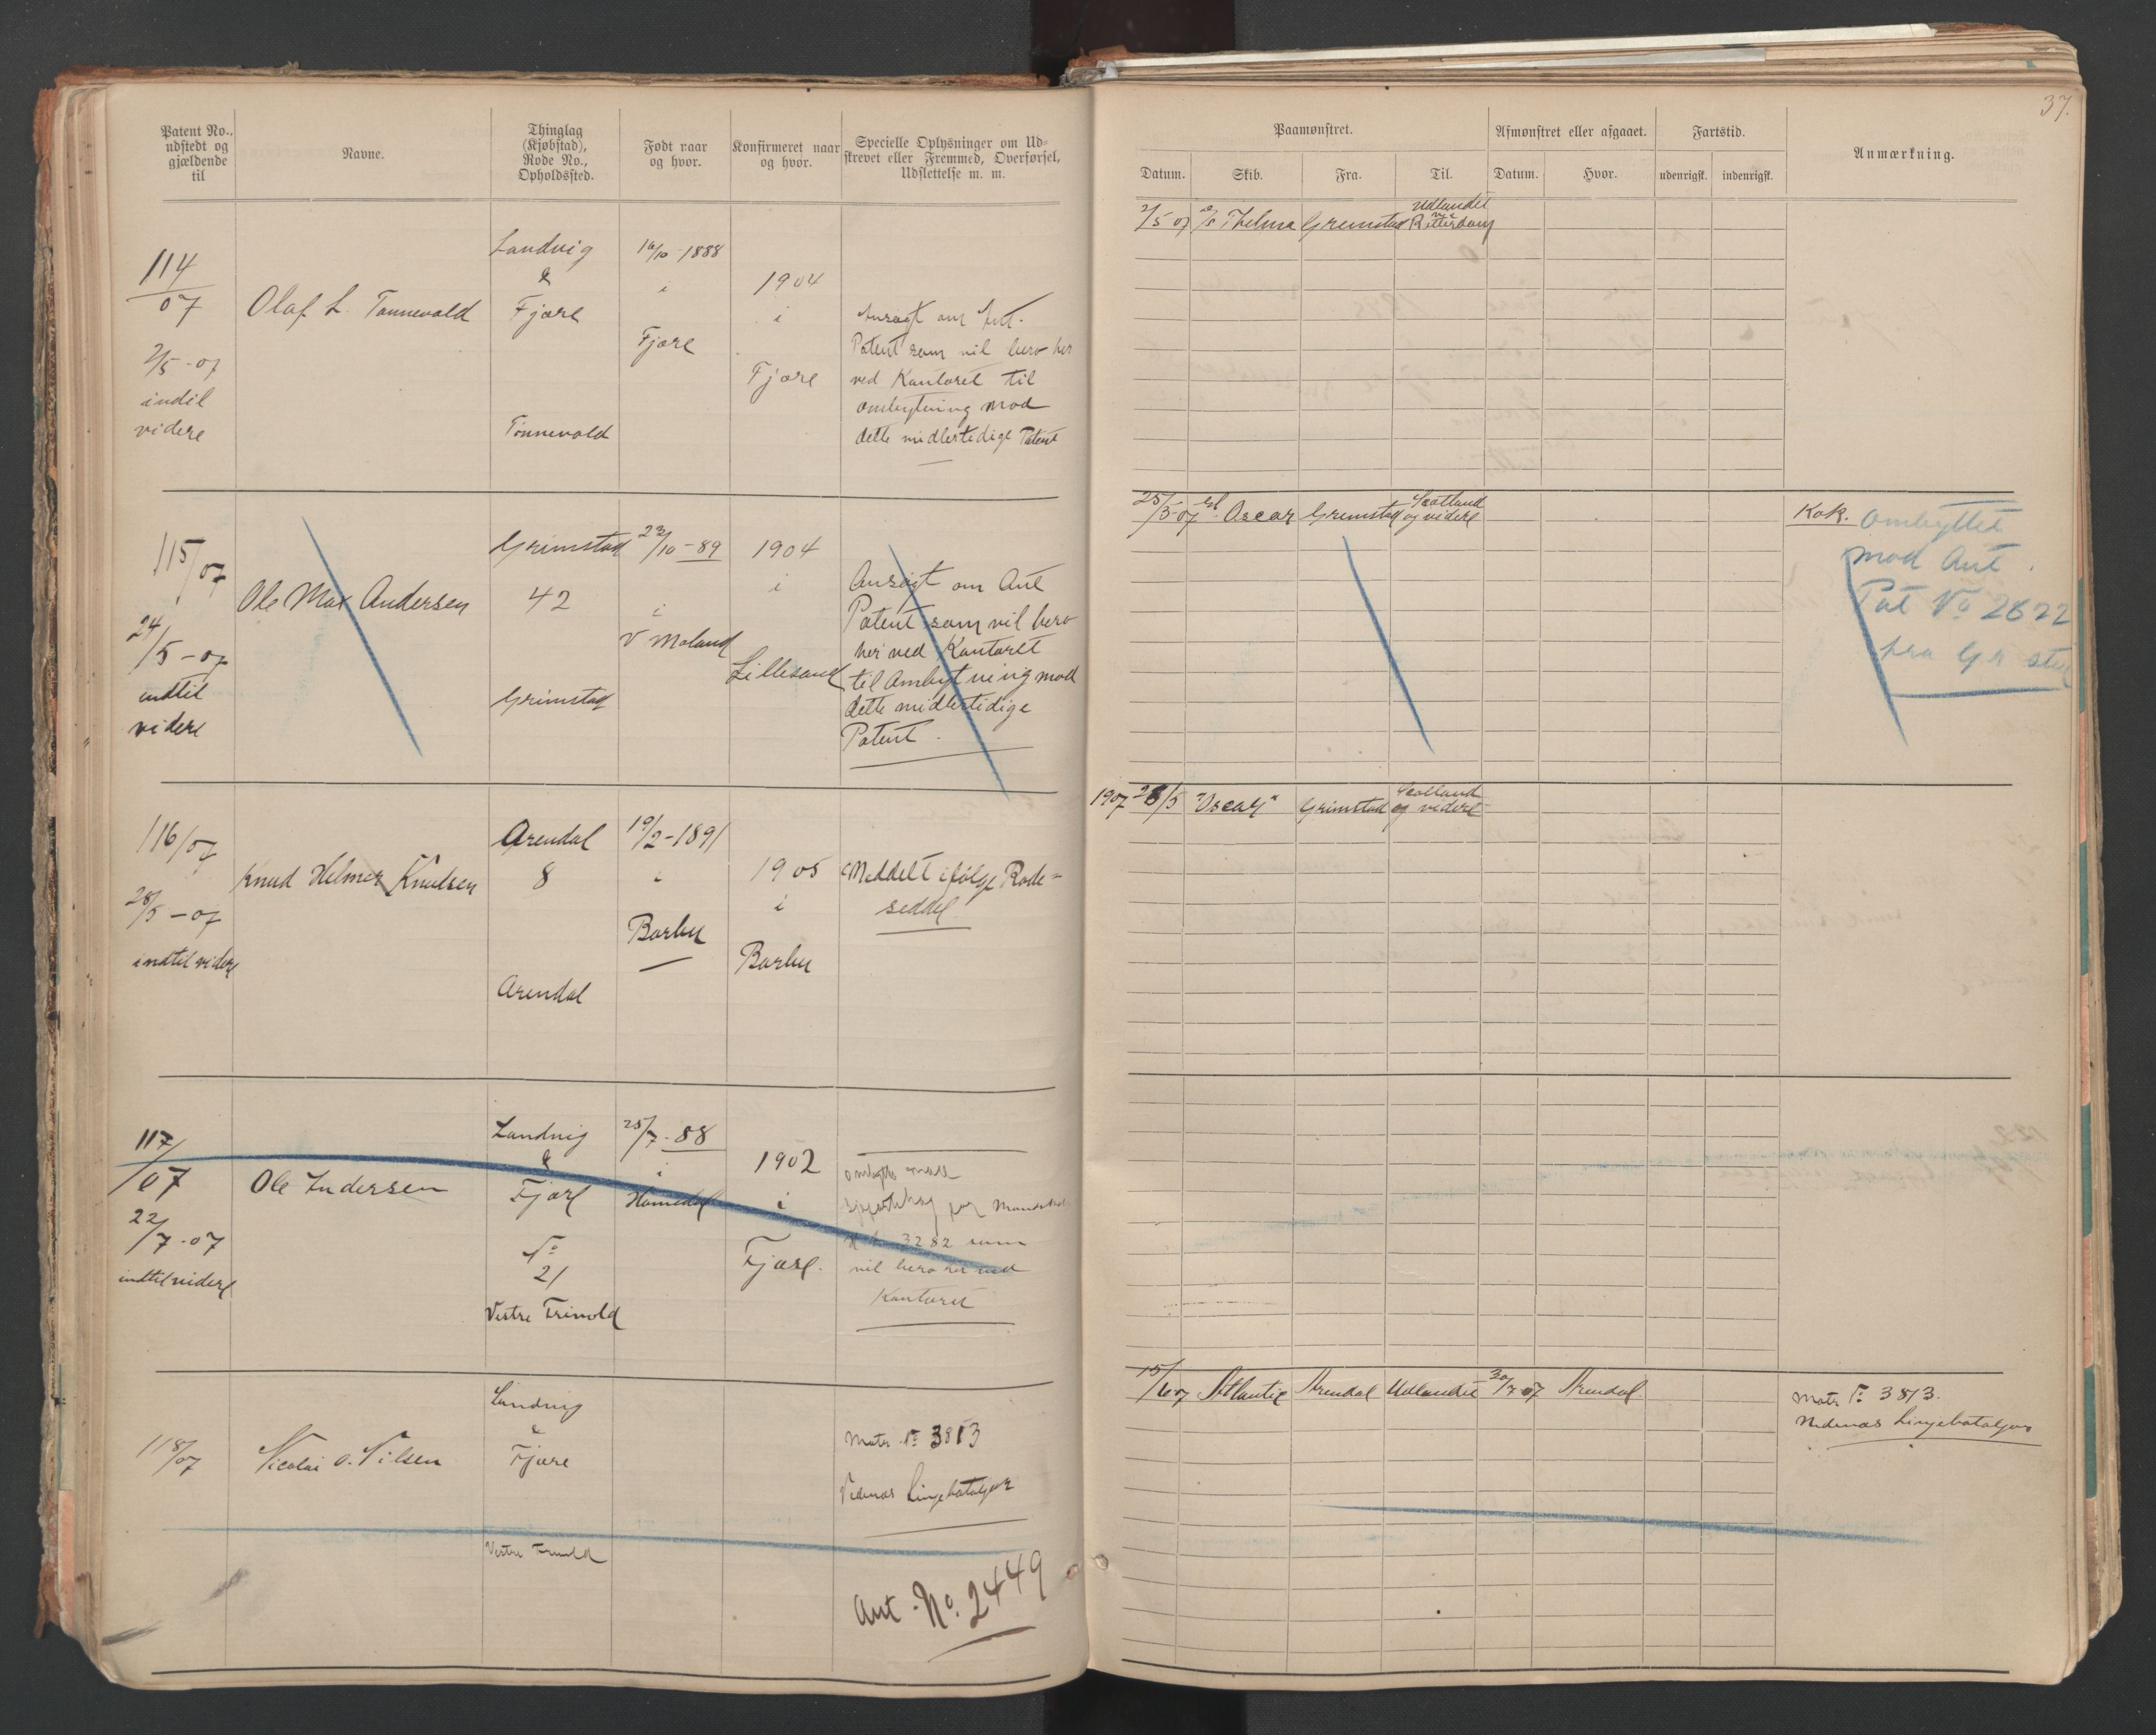 37.
Patent No., udstedt og gjældende til
Navne.
Thinglag (Kjøbstad), Rode No., Opholdssted.
Født naar og hvor.
Konfirmeret naar og hvor.
Specielle Oplysninger om Ud-
skrevet eller Fremmed, Overførsel,
Udslettelse m. m.
Paamønstret.
Afmønstret eller afgaaet.
Fartstid.
Anmærkning.
Datum.
Skib.
Fra.
Til.
Datum.
Hvor.
udenrigsk.
indenrigsk.
114/07
2/5-07
indtil
videre
Olaf L. Tønnevold
Landvig
&
Fjære
Tønnevold
16/10-1888
i
Fjære
1904
i
Fjære
Ansøgt om
Patent som vil bero her
ved Kontoret til
ombytning mod
dette midlertidige Patent
2/5 07
Thelma
Grimstad
Udlandet
via
Rotterdam
115/07
24/5-07
indtil
videre
Ole Max Andersen
Grimstad
42
Grimstad
23/10-89
i
V Moland
1904
i
Lillesand
Ansøgt om Ant
Patent som vil bero
her ved Kontoret
til Ombytning mod
dette midlertidige
Patent.
25/5-07
Oscar
Grimstad
Scotland
og videre
Kok.
Ombyttet
mod Ant.
Pat No 2622
fra Gr stad
116/07
28/5-07
indtil videre
Knud Helmer Knudsen
Arendal
8
Arendal
19/2-1891
i
Barbu
1905
i
Barbu
Meddelt ifølge Rode-
seddel
1907 28/5
"Oscar"
Grimstad
Scotland
og videre
117/07
22/7-07
indtil videre
Ole Andersen
Landvig
&
Fjære
No
21
Vestre Trivold
25/7-88
i
Homedal
1902
i
Fjære.
3282 som
vil bero her ved
Kontoret
118/07
Nicolai O. Nilsen
Landvig
&
Fjære
Vestre Trivold
Matr. No 3813
Nedenæs Linjebataljon
Ant. No. 2449
15/6 07
Atlantic
Arendal
Udlandet
30/7 07
Arendal
Matr No 3813.
Nedenæs Linjebataljon